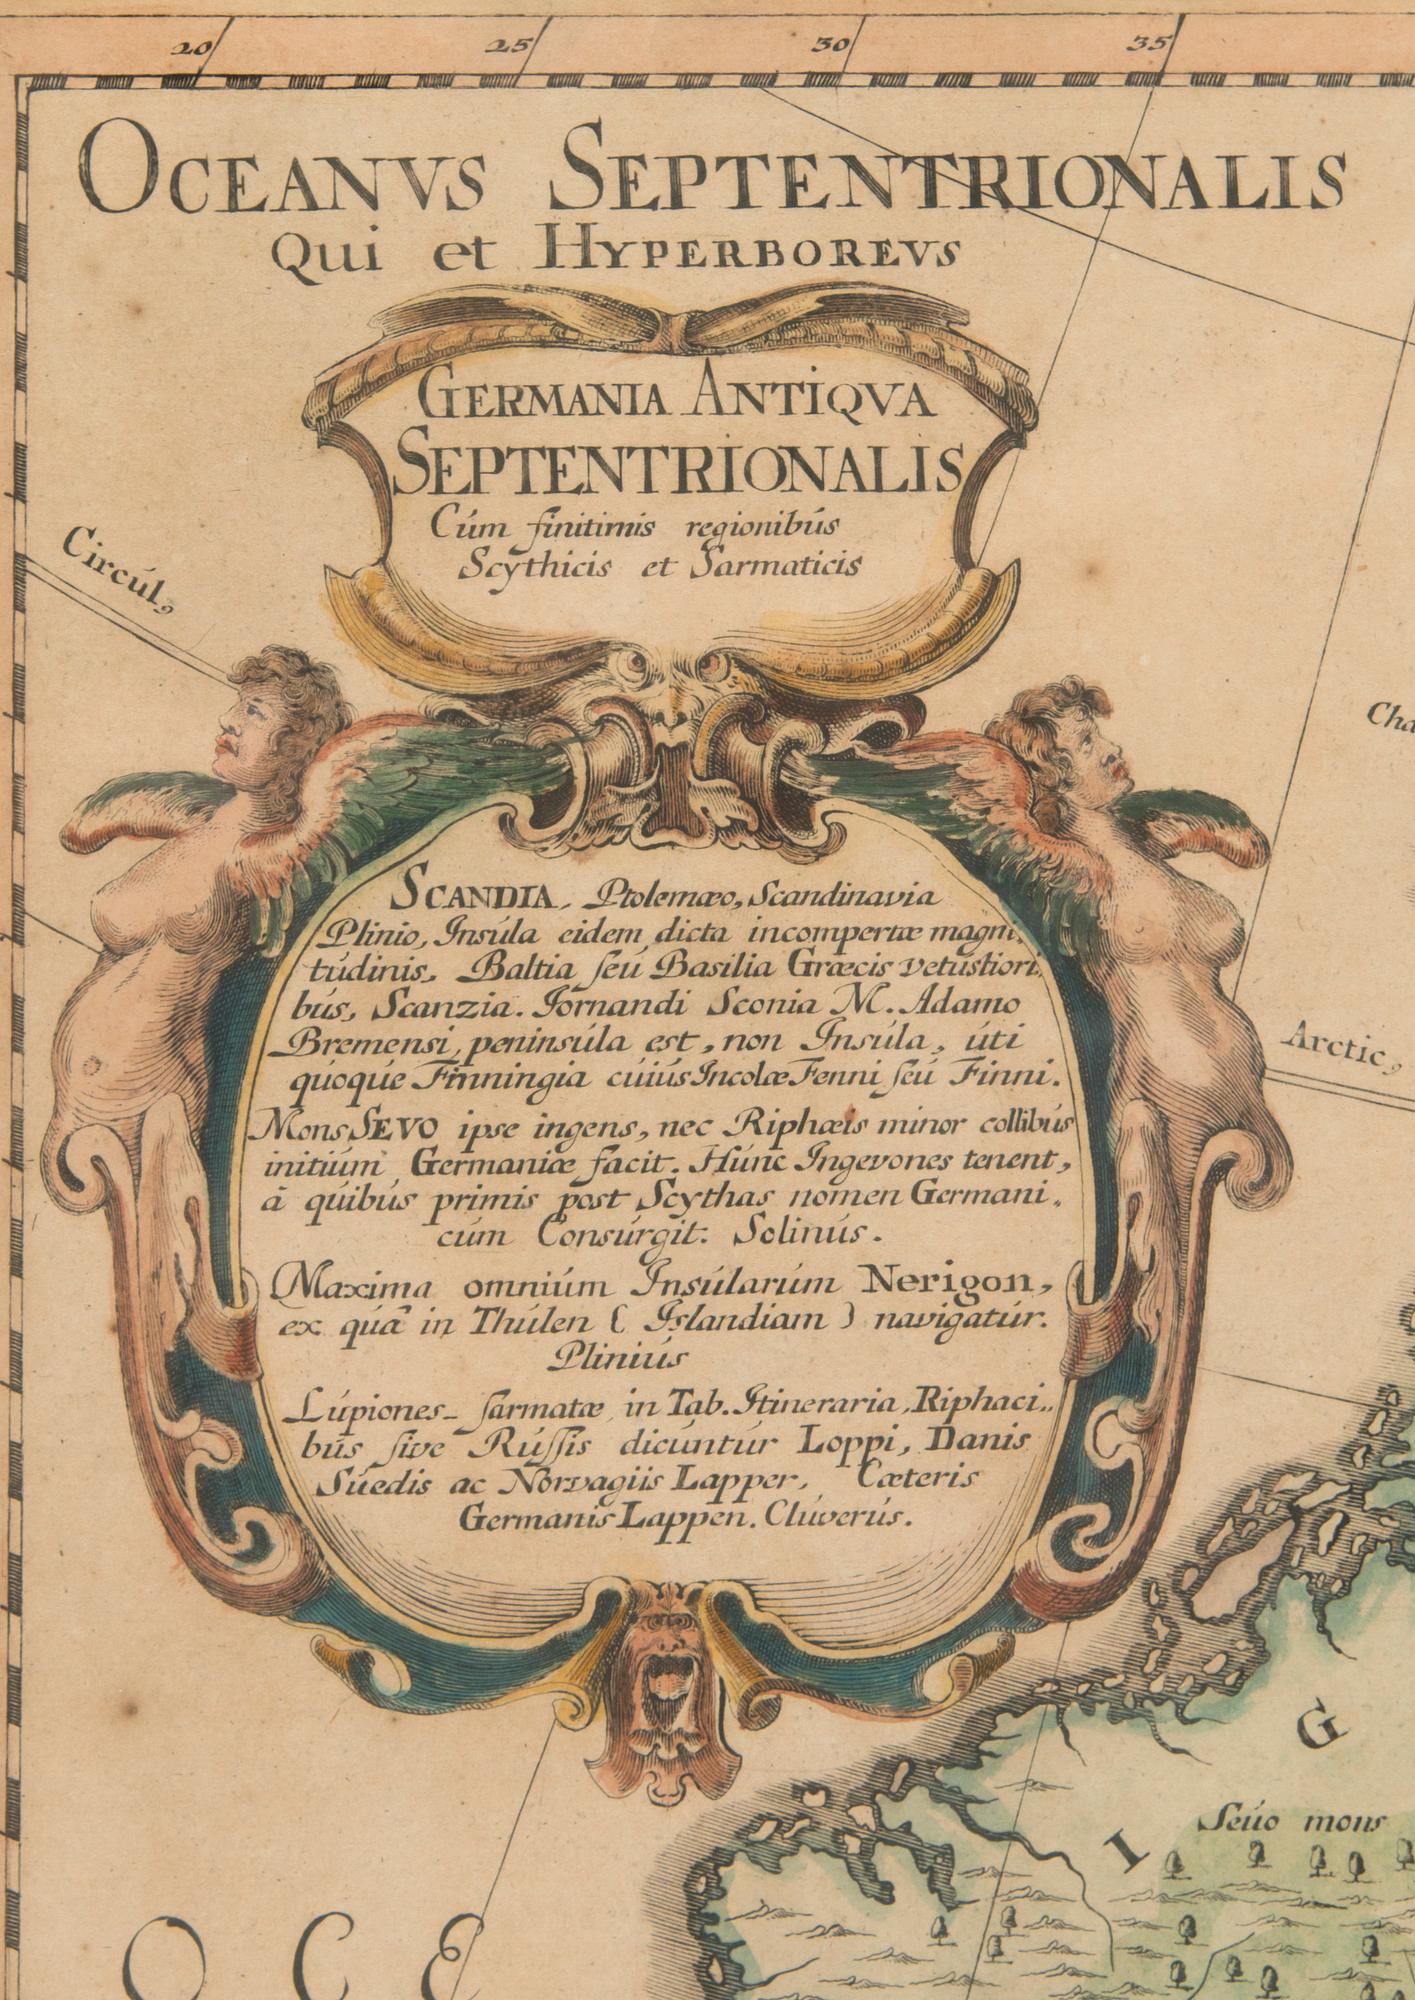 20 25 30 35
OCEANVS SEPTENTRIONALIS
Qui et HYPERBOREVS
GERMANIA ANTIQVA
SEPTENTRIONALIS
Cúm finitimis regionibús
Scythicis et Sarmaticis
Circúl,
Cha
SCANDIA, Ptolemæo, Scandinavia
Plinio, Insúla eidem dicta incompertæ magni,
túdinis, Baltia ſeú Basilia Græcis vetústiori,
bús, Scanzia. Jornandi Sconia M. Adamo
Bremensi, peninsúla est, non Insúla, úti
qúoqúe Finningia cúiús Incolæ Fenni ſeú Finni.
Mons SEVO ipse ingens, nec Riphæis minor collibús
initiúm Germaniæ facit. Húnc Ingevones tenent,
â qúibús primis post Scythas nomen Germani,
cúm Consúrgit. Solinús.
Maxima omniúm Insúlarúm Nerigon,
ex qúâ in Thúlen ( Islandiam ) navigatúr.
Pliniús
Lúpiones ſarmatæ in Tab. Itineraria, Riphaci,,
bús ſive Rúſſis dicúntúr Loppi, Danis
Súedis ac Norvagiis Lapper, Cæteris
Germanis Lappen. Clúverús.
Arctic,
G
I
Seúo mons
O C E